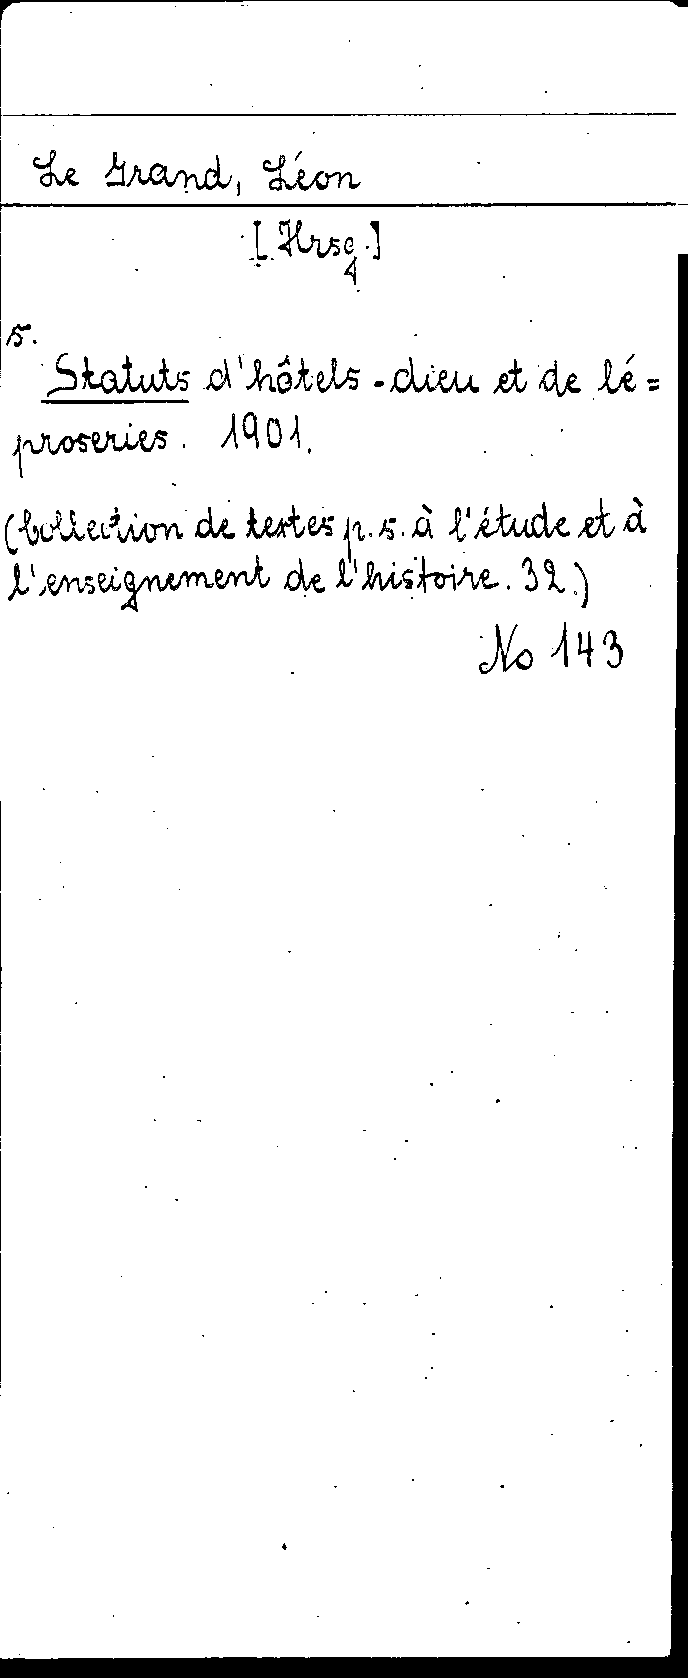 Le Grand, Léon
[Hrsg.]
s.
Statuts d'hôtels-dieu et de lé=
proseries. 1901.
(Collection de textes p. s. à l'étude et à
l'enseignement de l'histoire. 32.)
No 143